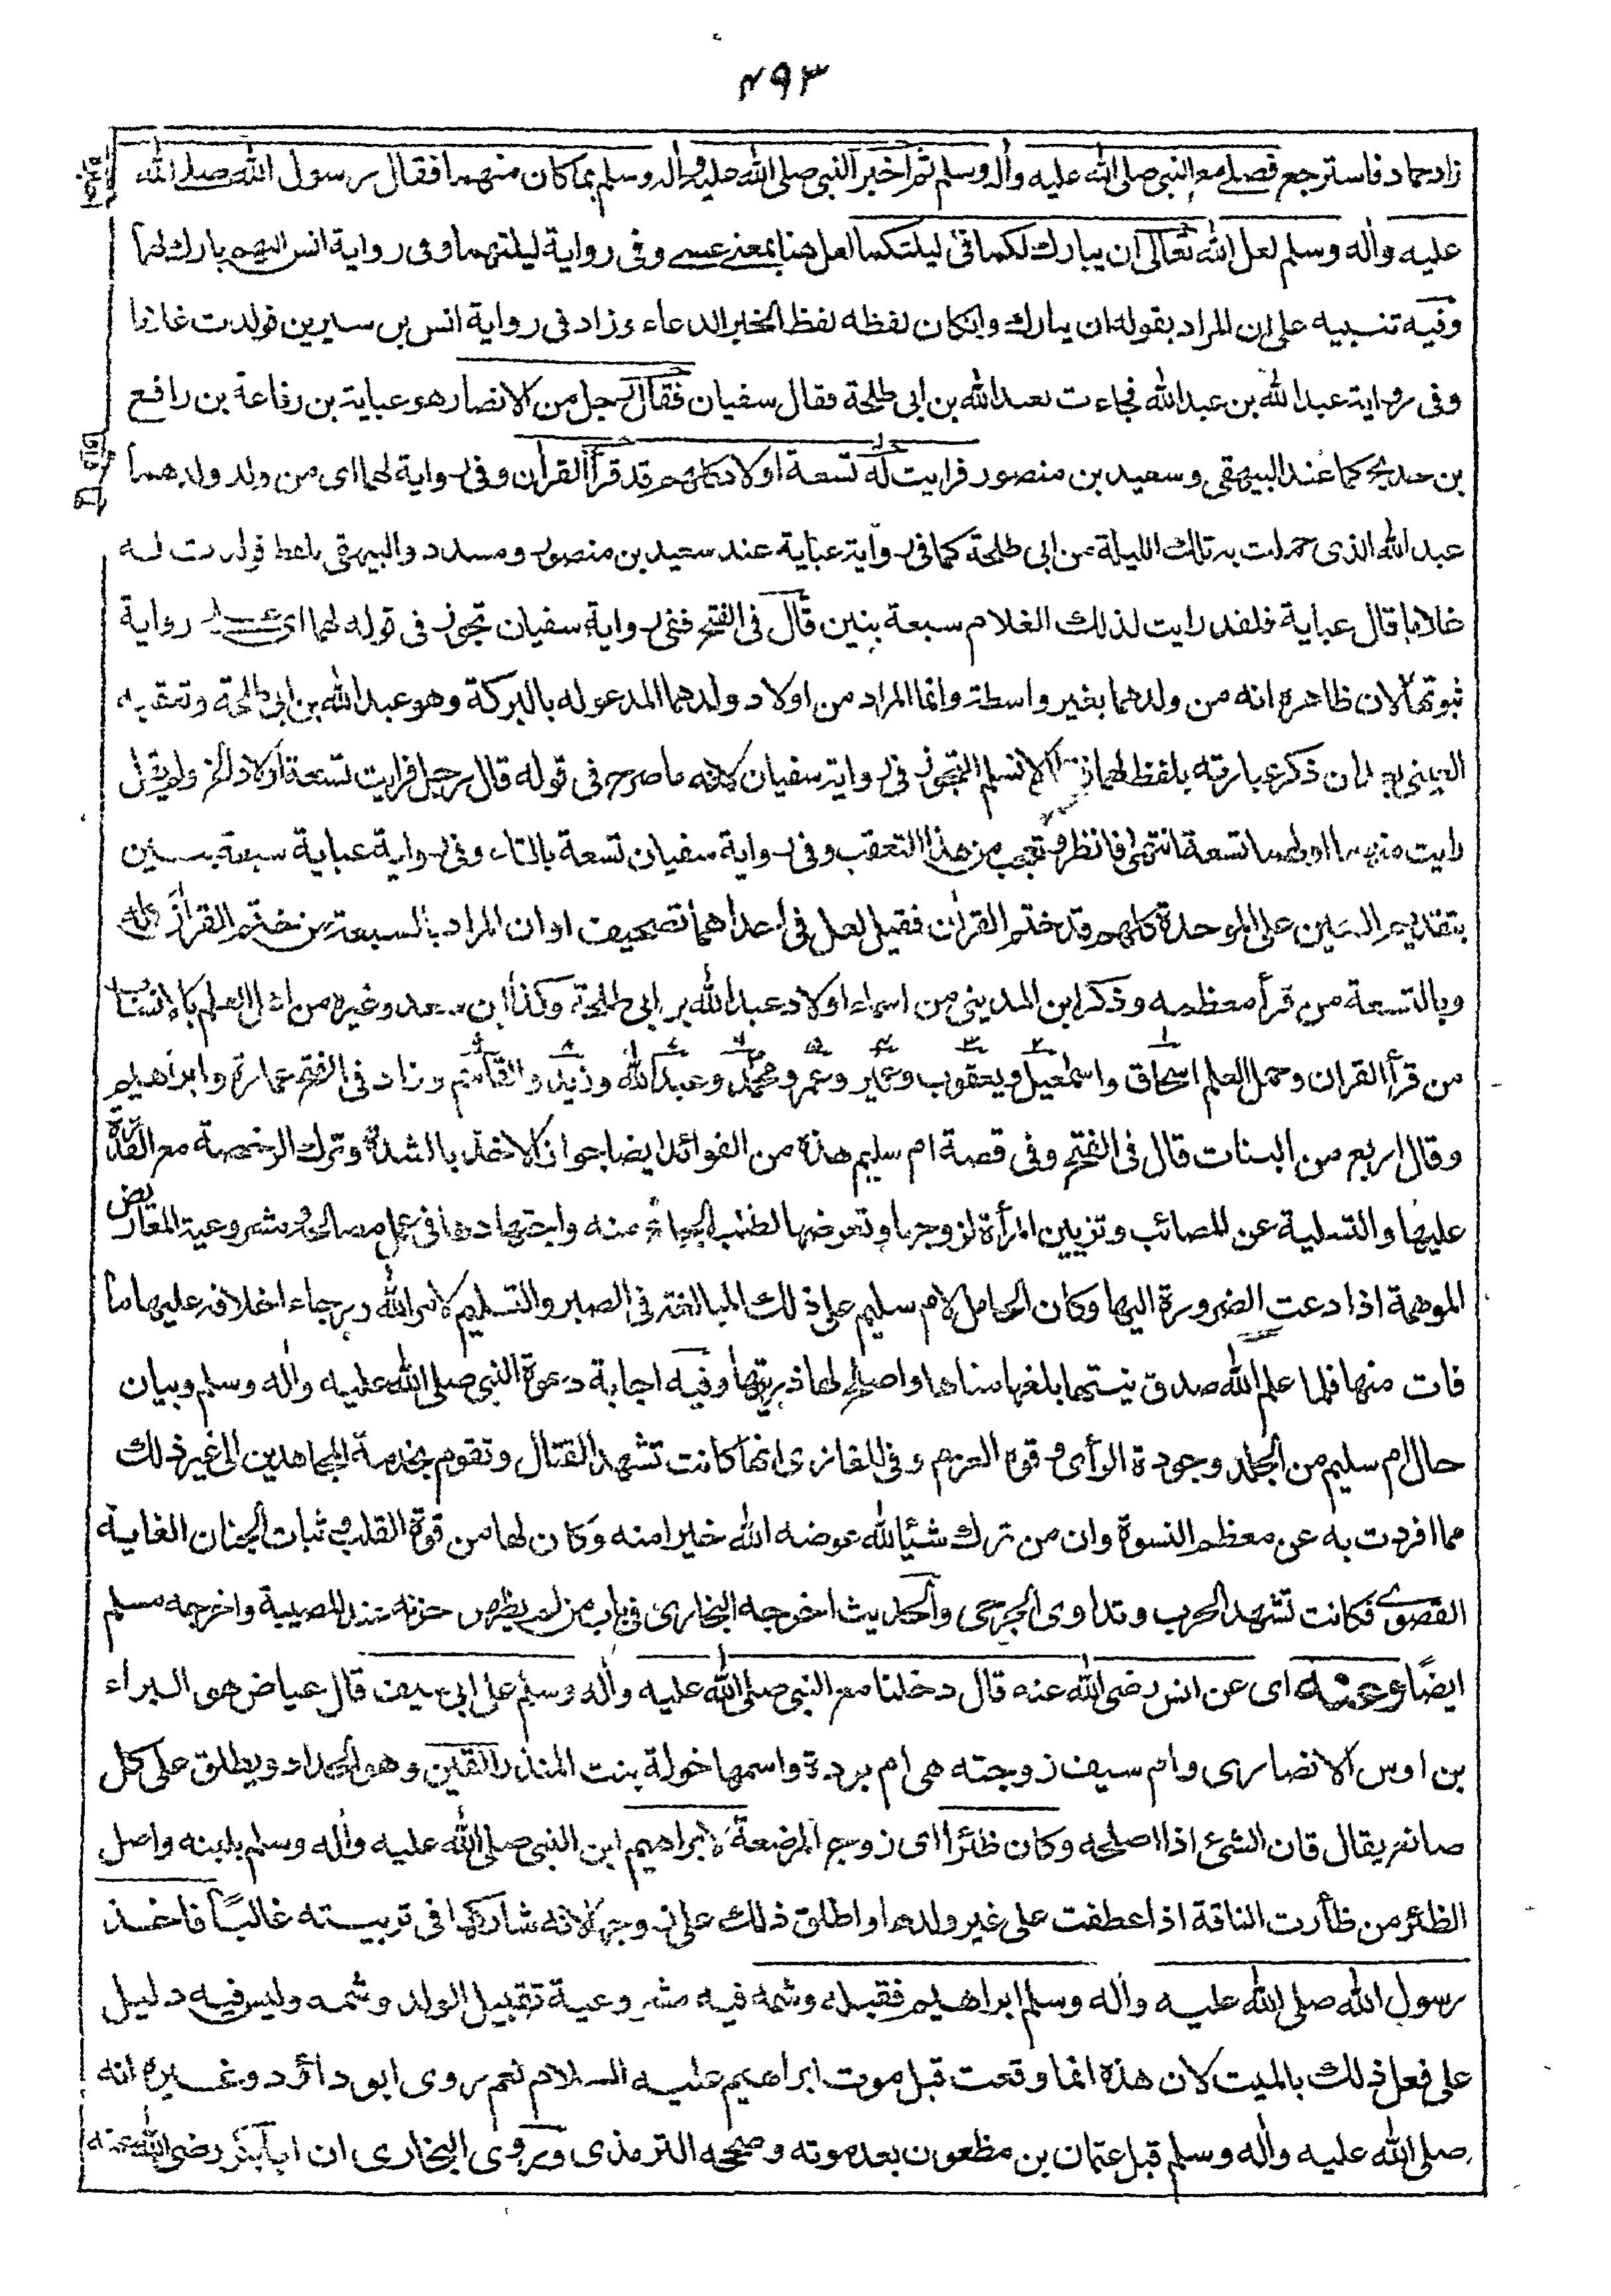 ٤٩٣
زاد حماد فاسترجع فصلے مع النبي صلى الله عليه واله وسلم ثم اخبر النبي صلى الله عليه واله وسلم بما كان منهما فقال رسول الله صلے الله
عليه واله وسلم لعل الله تعالى ان يبارك لكما فى ليلتكما لعل هنا بمعنے عسے وفى رواية ليلتهما وفى رواية انس اللهم بارك لهما
وفيه تنبيه على ان المراد بقوله ان يبارك وان كان لفظه لفظ الخبر الدعاء وزاد فى رواية انس بن سيرين فولدت غلاما
وفى رواية عبد الله بن عبد الله فجاءت بعبد الله بن ابى طلحة فقال سفيان فقال رجل من الانصار هو عباية بن رفاعة بن رافع
بن خديج كما عند البيهقى وسعيد بن منصور فرايت له تسعة اولاد كلهم قد قرأ القرأن وفى رواية لهما اى من ولد ولدهما
عبد الله الذى حملت به تلك الليلة من ابى طلحة كما فى رواية عباية عند سعيد بن منصور ومسدد والبيهقى بلفظ فولدت له
غلاما قال عباية فلقد رايت لذلك الغلام سبعة بنين قال فى الفتح ففى رواية سفيان تجوز فى قوله لهما اى على رواية
ثبوتها لان ظاهره انه من ولدهما بغير واسطة وانما المراد من اولاد ولدهما المدعو له بالبركة وهو عبد الله بن ابى طلحة وتعقبه
العينى بعد ان ذكر عبارته بلفظ لهما لا نسلم التجوز فى رواية سفيان لانه ما صرح فى قوله قال رجل فرايت تسعة اولاد الخ ولم يقل
رايت منهما او لهما تسعة انتهى فانظر وتعجب من هذا التعقب وفى رواية سفيان تسعة بالتاء وفى رواية عباية سبعة بنين
بتقديم السين على الموحدة كلهم قد ختم القرأن فقيل لعل فى احداهما تصحيف او ان المراد بالسبعة من ختم القرأن كله
وبالتسعة من قرأ معظمه وذكر ابن المدينى من اسماء اولاد عبد الله بن ابى طلحة وكذا ابن سعد وغيره من اهل العلم بالانساب
من قرأ القران وحمل العلم اسحاق واسمعيل ويعقوب وعمير وعمرو ومحمد وعبد الله وزيد والقاسم وزاد فى الفتح عمارة وابراهيم
وقال اربع من البنات قال فى الفتح وفى قصة ام سليم هذه من الفوائد ايضا جواز الاخذ بالشدة وترك الرخصة مع القدرة
عليها والتسلية عن المصائب وتزيين المرأة لزوجها وتعرضها لطلب الجماع منه واجتهادها فى عمل مصالحه ومشروعية المعاريض
الموهمة اذا دعت الضرورة اليها وكان الحامل لام سليم على ذلك المبالغة فى الصبر والتسليم لامر الله ورجاء اخلافه عليها ما
فات منها فلما علم الله صدق نيتهما بلغها مناها واصلح لها ذريتها وفيه اجابة دعوة النبي صلى الله عليه واله وسلم وبيان
حال ام سليم من الجلد وجودة الرأى وقوة العزم وفى المغازى انها كانت تشهد القتال وتقوم بخدمة المجاهدين الى غير ذلك
مما افردت به عن معظم النسوة وان من ترك شيئا لله عوضه الله خيرا منه وكان لها من قوة القلب وثبات الجنان الغاية
القصوے فكانت تشهد الحرب وتداوى الجرحى والحديث اخرجه البخارى فى باب من لم يظهر حزنه عند المصيبة واخرجه مسلم
ايضًا وعنه اى عن انس رضى الله عنه قال دخلنا مع النبي صلى الله عليه واله وسلم على ابى سيف قال عياض هو البراء
بن اوس الانصارى وام سيف زوجته هى ام بردة واسمها خولة بنت المنذر القين وهو الحداد ويطلق على كل
صانع يقال قان الشئ اذا اصلحه وكان ظئرا اى زوج المرضعة لابراهيم ابن النبي صلى الله عليه واله وسلم بلبنه واصل
الظئر من ظأرت الناقة اذا عطفت على غير ولدها واطلق ذلك على زوجها لانه شاركها فى تربيته غالبًا فاخذ
رسول الله صلى الله عليه واله وسلم ابراهيم فقبله وشمه فيه مشروعية تقبيل الولد وشمه وليس فيه دليل
على فعل ذلك بالميت لان هذه انما وقعت قبل موت ابراهيم عليه السلام نعم روى ابو داؤد وغيره انه
صلى الله عليه واله وسلم قبل عثمان بن مظعون بعد موته وصححه الترمذى وروى البخارى ان ابا بكر رضى الله عنه